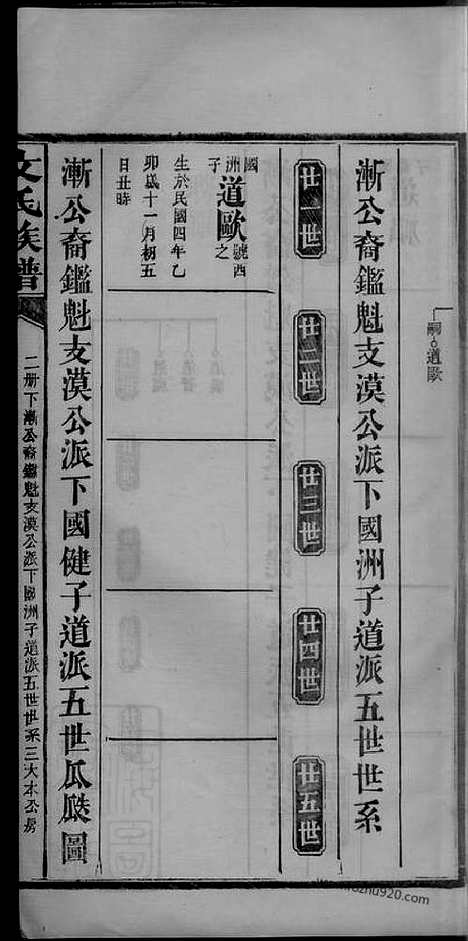 嗣○道歐
漸公裔鑑魁支漠公派下國洲子道派五世世系
廿一世
廿二世
廿三世
廿四世
廿五世
國洲子
道歐號西之
生於民國四年乙
卯歲十一月初五
日丑時
漸公裔鑑魁支漠公派下國健子道派五世瓜瓞圖
文氏族譜
二册下漸公裔鑑魁支漠公派下國洲子道派五世世系三大本公房